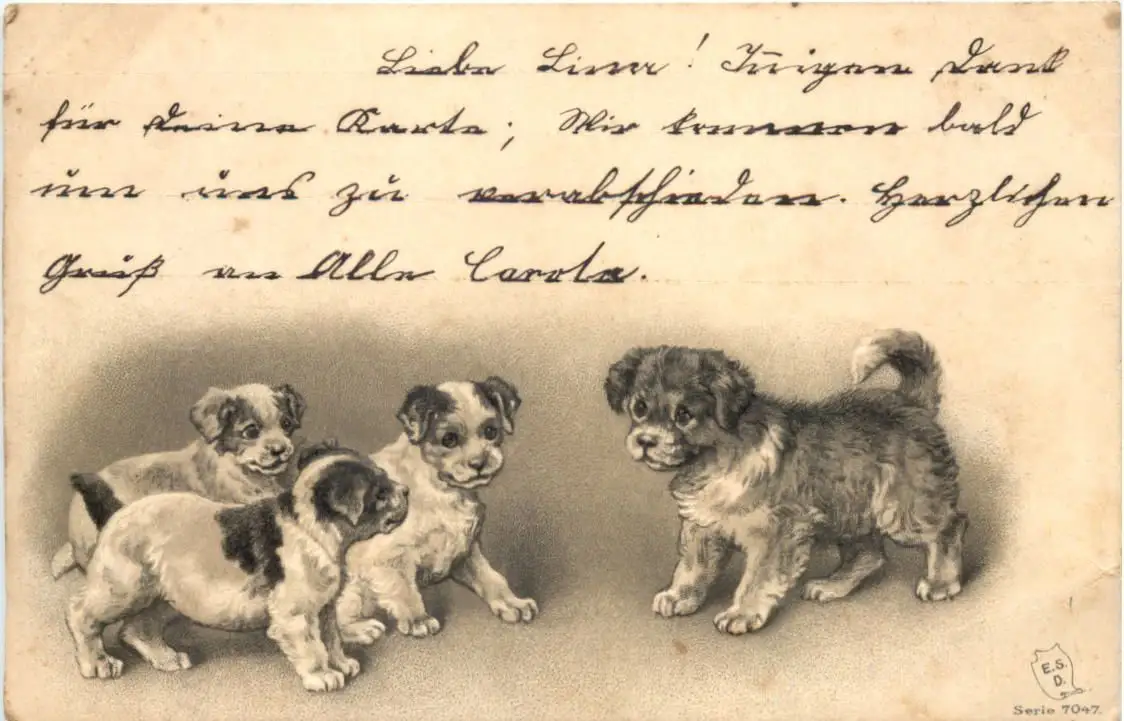 Liebe Lina! Innigen Dank
für Deine Karte; Wir kommen bald
um uns zu verabschieden. Herzlichen
Gruß an Alle Carola.
E.S.
D.
Serie 7047.